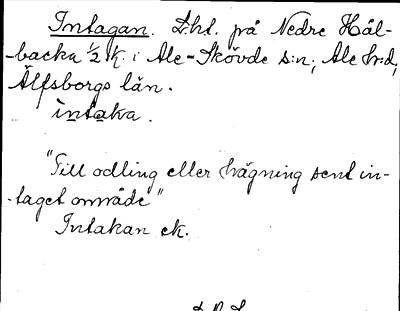 Intagan. D:hl. på Nedre Häl-
backa ½ K. i Ale-Skövde s:n; Ale h:d,
Älfsborgs län.
intaka.
"Till odling eller hägning sent in-
-taget område"
Intakan ek.